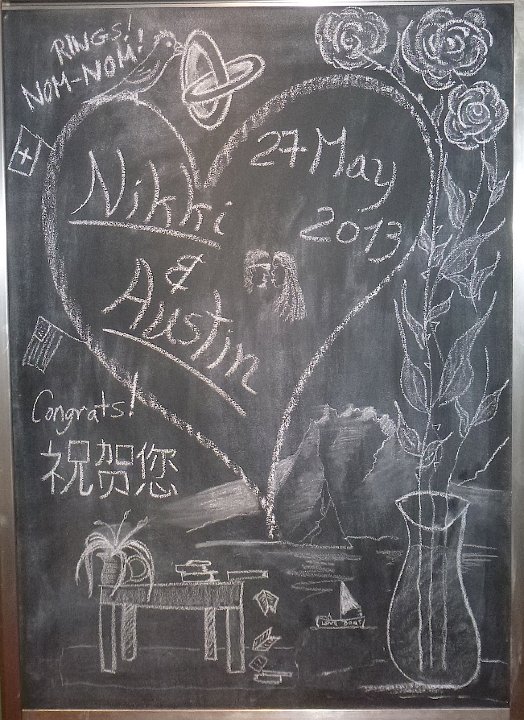 RINGS!
NOM-NOM!
27 May
2013
Nikki
&
Austin
Congrats!
祝贺您
LOVE BOAT